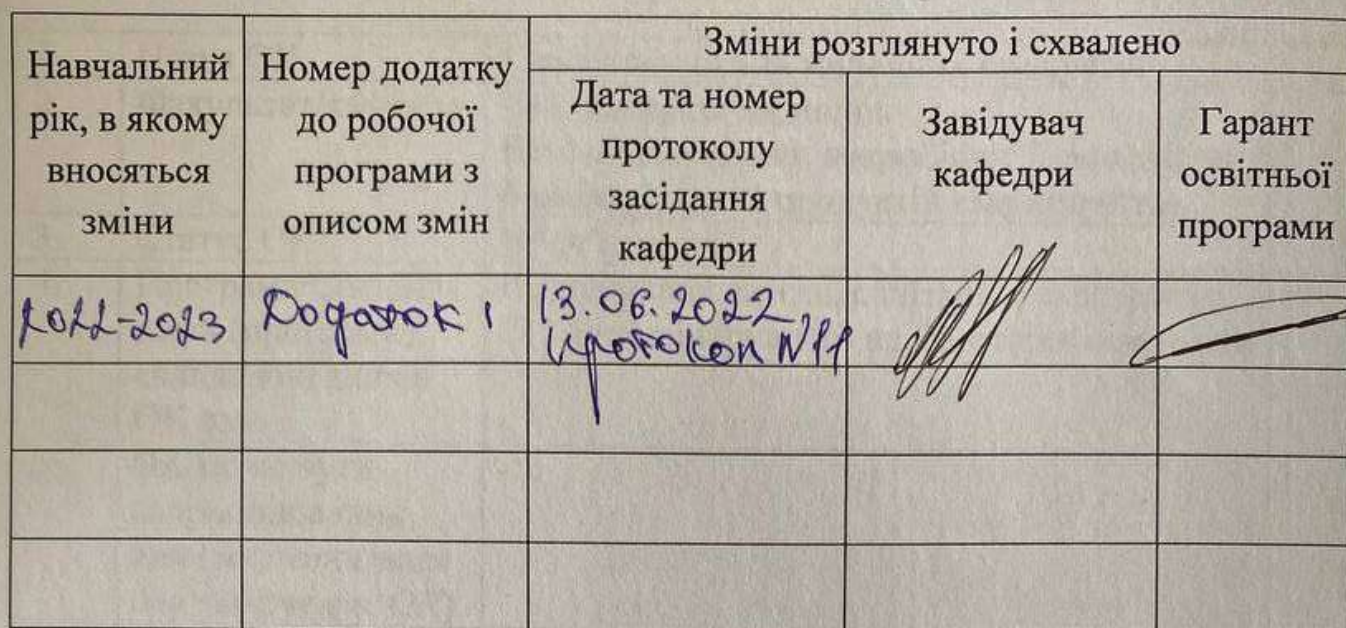 Навчальний
рік, в якому
вносяться
зміни
Номер додатку
до робочої
програми з
описом змін
Зміни розглянуто і схвалено
Дата та номер
протоколу
засідання
кафедри
Завідувач
кафедри
Гарант
освітньої
програми
2022-2023
Додаток 1
13.06.2022,
протокол №11